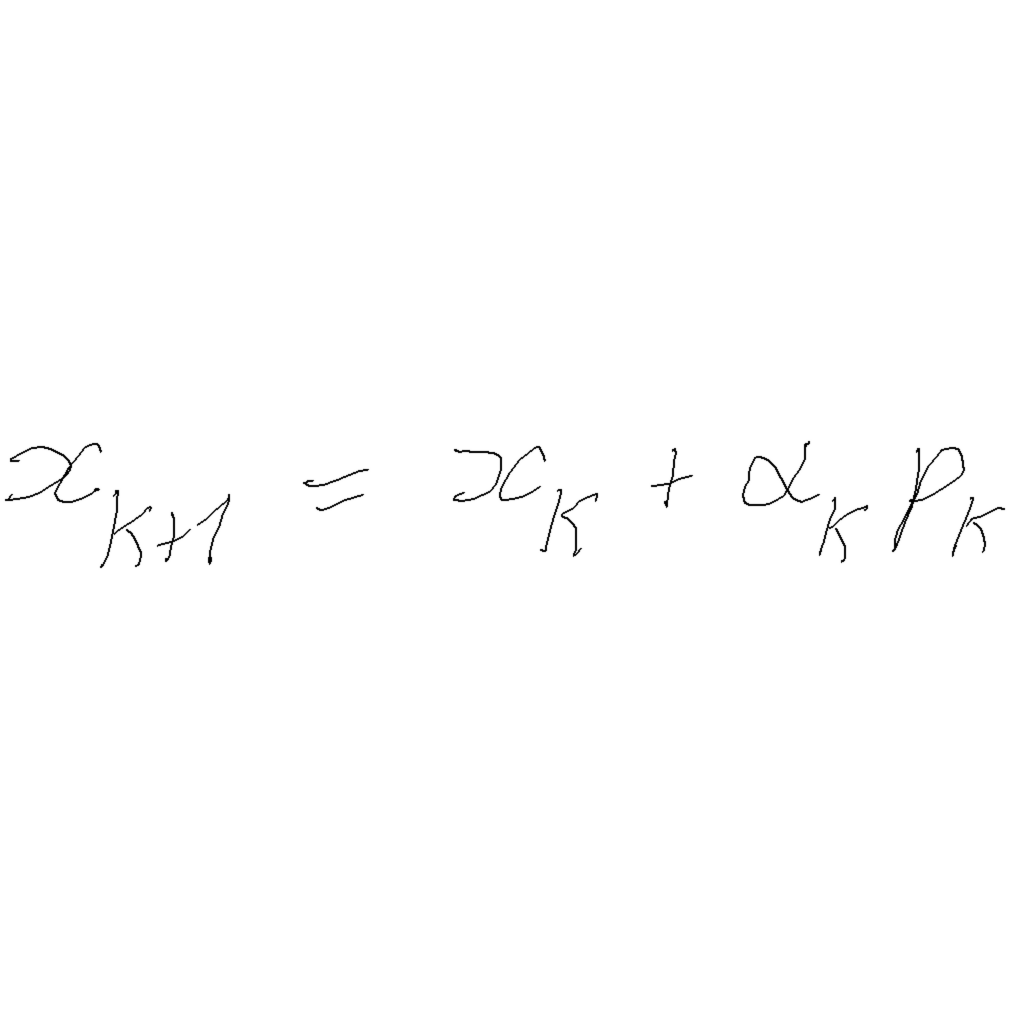 x_{k+1} = x_k + α_k p_k